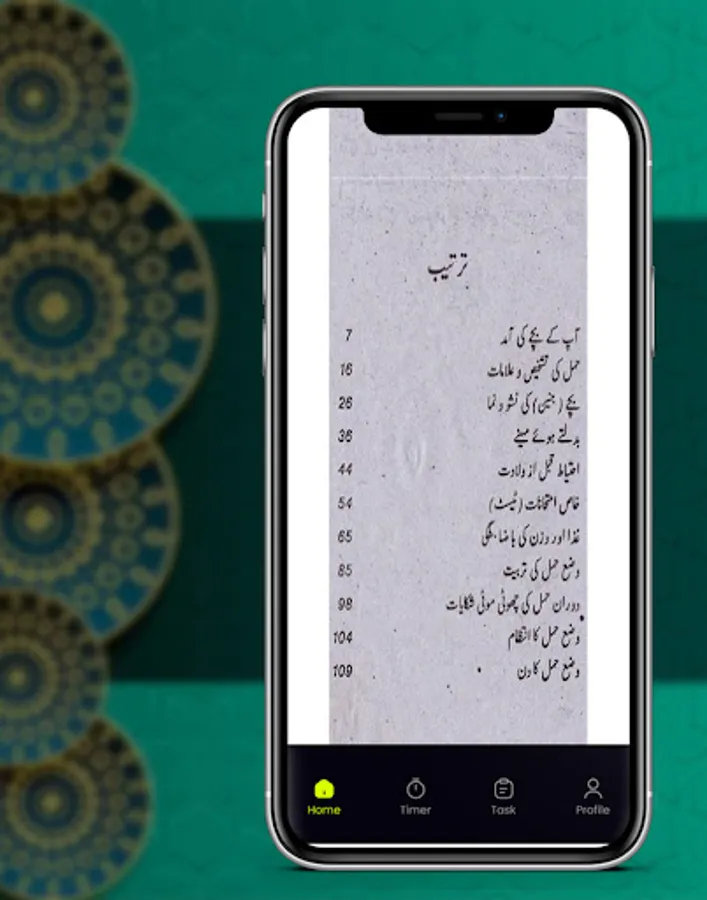 ترتیب
آپ کے بچے کی آمد 7
حمل کی تشخیص و علامات 16
بچے (جنین) کی نشو و نما 26
بدلتے ہوئے مہینے 36
احتیاط قبل از ولادت 44
خاص امتحانات (ٹیسٹ) 54
غذا اور وزن کی باضابطگی 65
وضع حمل کی تربیت 85
دوران حمل کی چھوٹی موٹی شکایات 98
وضع حمل کا انتظام 104
وضع حمل کا دن 109
Home Timer Task Profile